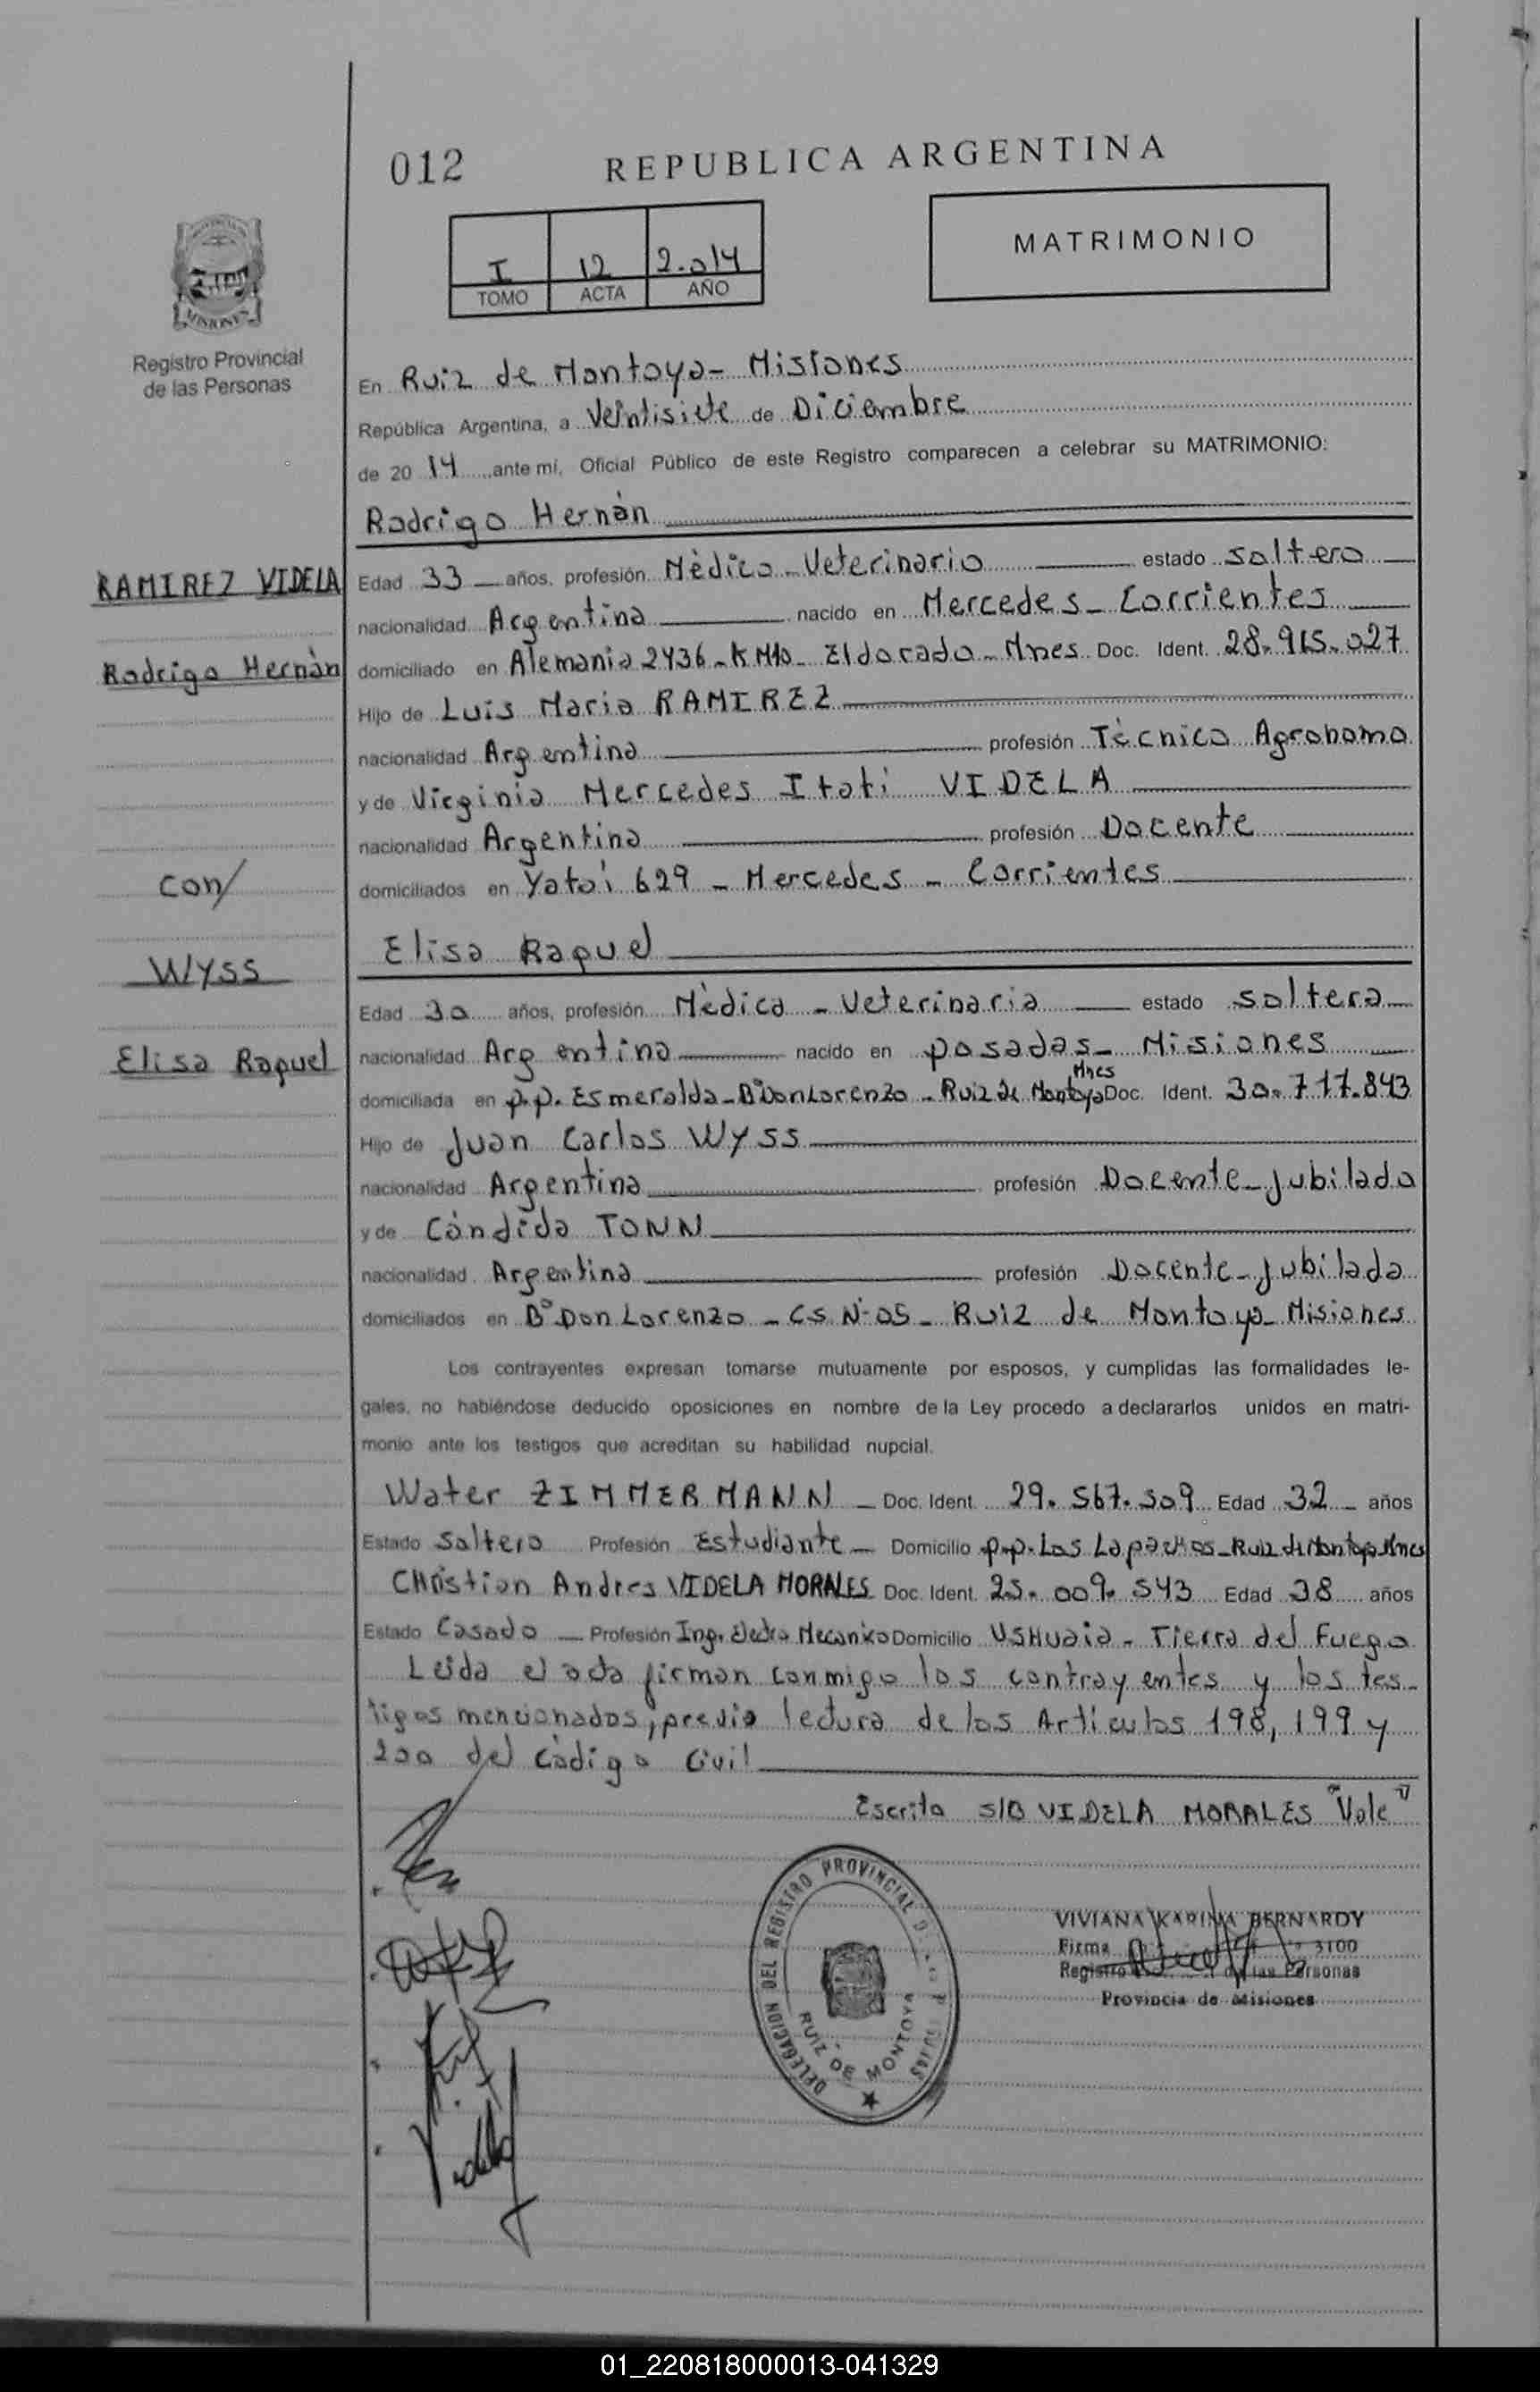 012
REPUBLICA ARGENTINA
I 12 2.014
TOMO ACTA AÑO
MATRIMONIO
MISIONES
Registro Provincial
de las Personas
En Ruiz de Montoya - Misiones
República Argentina, a Veintisiete de Diciembre
de 20 14 ante mí, Oficial Público de este Registro comparecen a celebrar su MATRIMONIO:
Rodrigo Hernàn
RAMIREZ VIDELA
Rodrigo Hernàn
con/
WYSS
Elisa Raquel
Edad 33 años, profesión Mèdico - Veterinario estado soltero
nacionalidad Argentina nacido en Mercedes - Corrientes
domiciliado en Alemania 2436 - KM10 - Eldorado - Mnes Doc. Ident. 28.915.027
Hijo de Luis Maria RAMIREZ
nacionalidad Argentina profesión Tècnico Agronomo
y de Virginia Mercedes Itati VIDELA
nacionalidad Argentina profesión Docente
domiciliados en Yatai 629 - Mercedes - Corrientes
Elisa Raquel
Edad 30 años, profesión Mèdica - Veterinaria estado soltera
nacionalidad Argentina nacido en posadas - Misiones
domiciliada en p.p. Esmeralda - B° Don Lorenzo - Ruiz de Montoya Mnes Doc. Ident. 30.717.843
Hijo de Juan Carlos WYSS
nacionalidad Argentina profesión Docente - Jubilado
y de Càndida TONN
nacionalidad Argentina profesión Docente - Jubilada
domiciliados en B° Don Lorenzo - CS N° 05 - Ruiz de Montoya - Misiones
Los contrayentes expresan tomarse mutuamente por esposos, y cumplidas las formalidades le-
gales, no habiéndose deducido oposiciones en nombre de la Ley procedo a declararlos unidos en matri-
monio ante los testigos que acreditan su habilidad nupcial.
Water ZIMMERMANN - Doc. Ident. 29.567.309 Edad 32 años
Estado Soltero Profesión Estudiante - Domicilio p.p. Los Lapachos - Ruiz de Montoya Mnes
CHristian Andres VIDELA MORALES Doc. Ident. 25.009.543 Edad 38 años
Estado Casado - Profesión Ing. Electro Mecanico Domicilio USHuaia - Tierra del Fuego
Leida el acta firman conmigo los contrayentes y los tes-
tigos mencionados, previa lectura de los Articulos 198, 199 y
200 del Còdigo Civil
Escrito S/B VIDELA MORALES "Vale"
DELEGACION DEL REGISTRO PROVINCIAL
RUIZ DE MONTOYA
VIVIANA KARINA BERNARDY
Firma 3100
Registro de las Personas
Provincia de Misiones
Videla
01_220818000013-041329